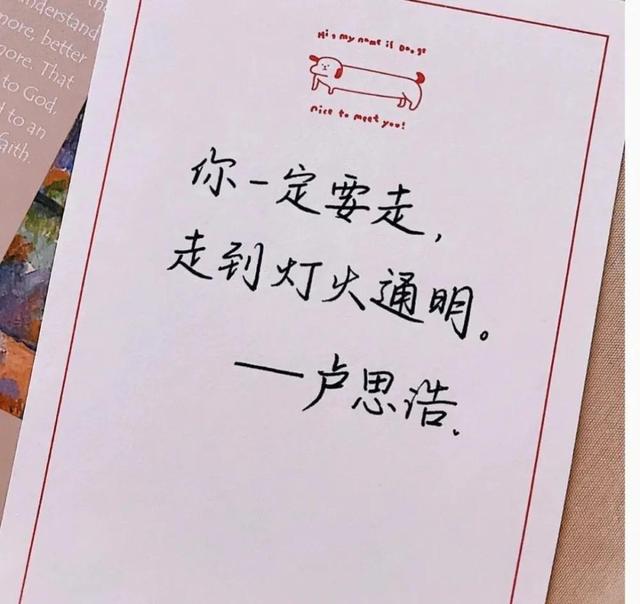 understand
more, better
more. That
to God,
to an
faith.
Hi, my name is Doo.ge
nice to meet you!
你一定要走，
走到灯火通明。
——卢思浩.